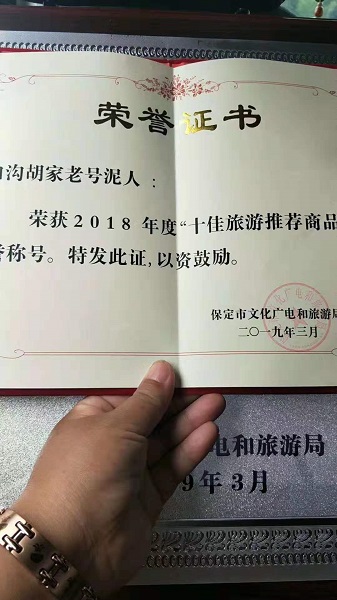 荣誉证书
沟胡家老号泥人：
荣获2018年度“十佳旅游推荐商品
誉称号。特发此证，以资鼓励。
保定市文化广电和旅游局
二〇一九年三月
电和旅游局
9年3月